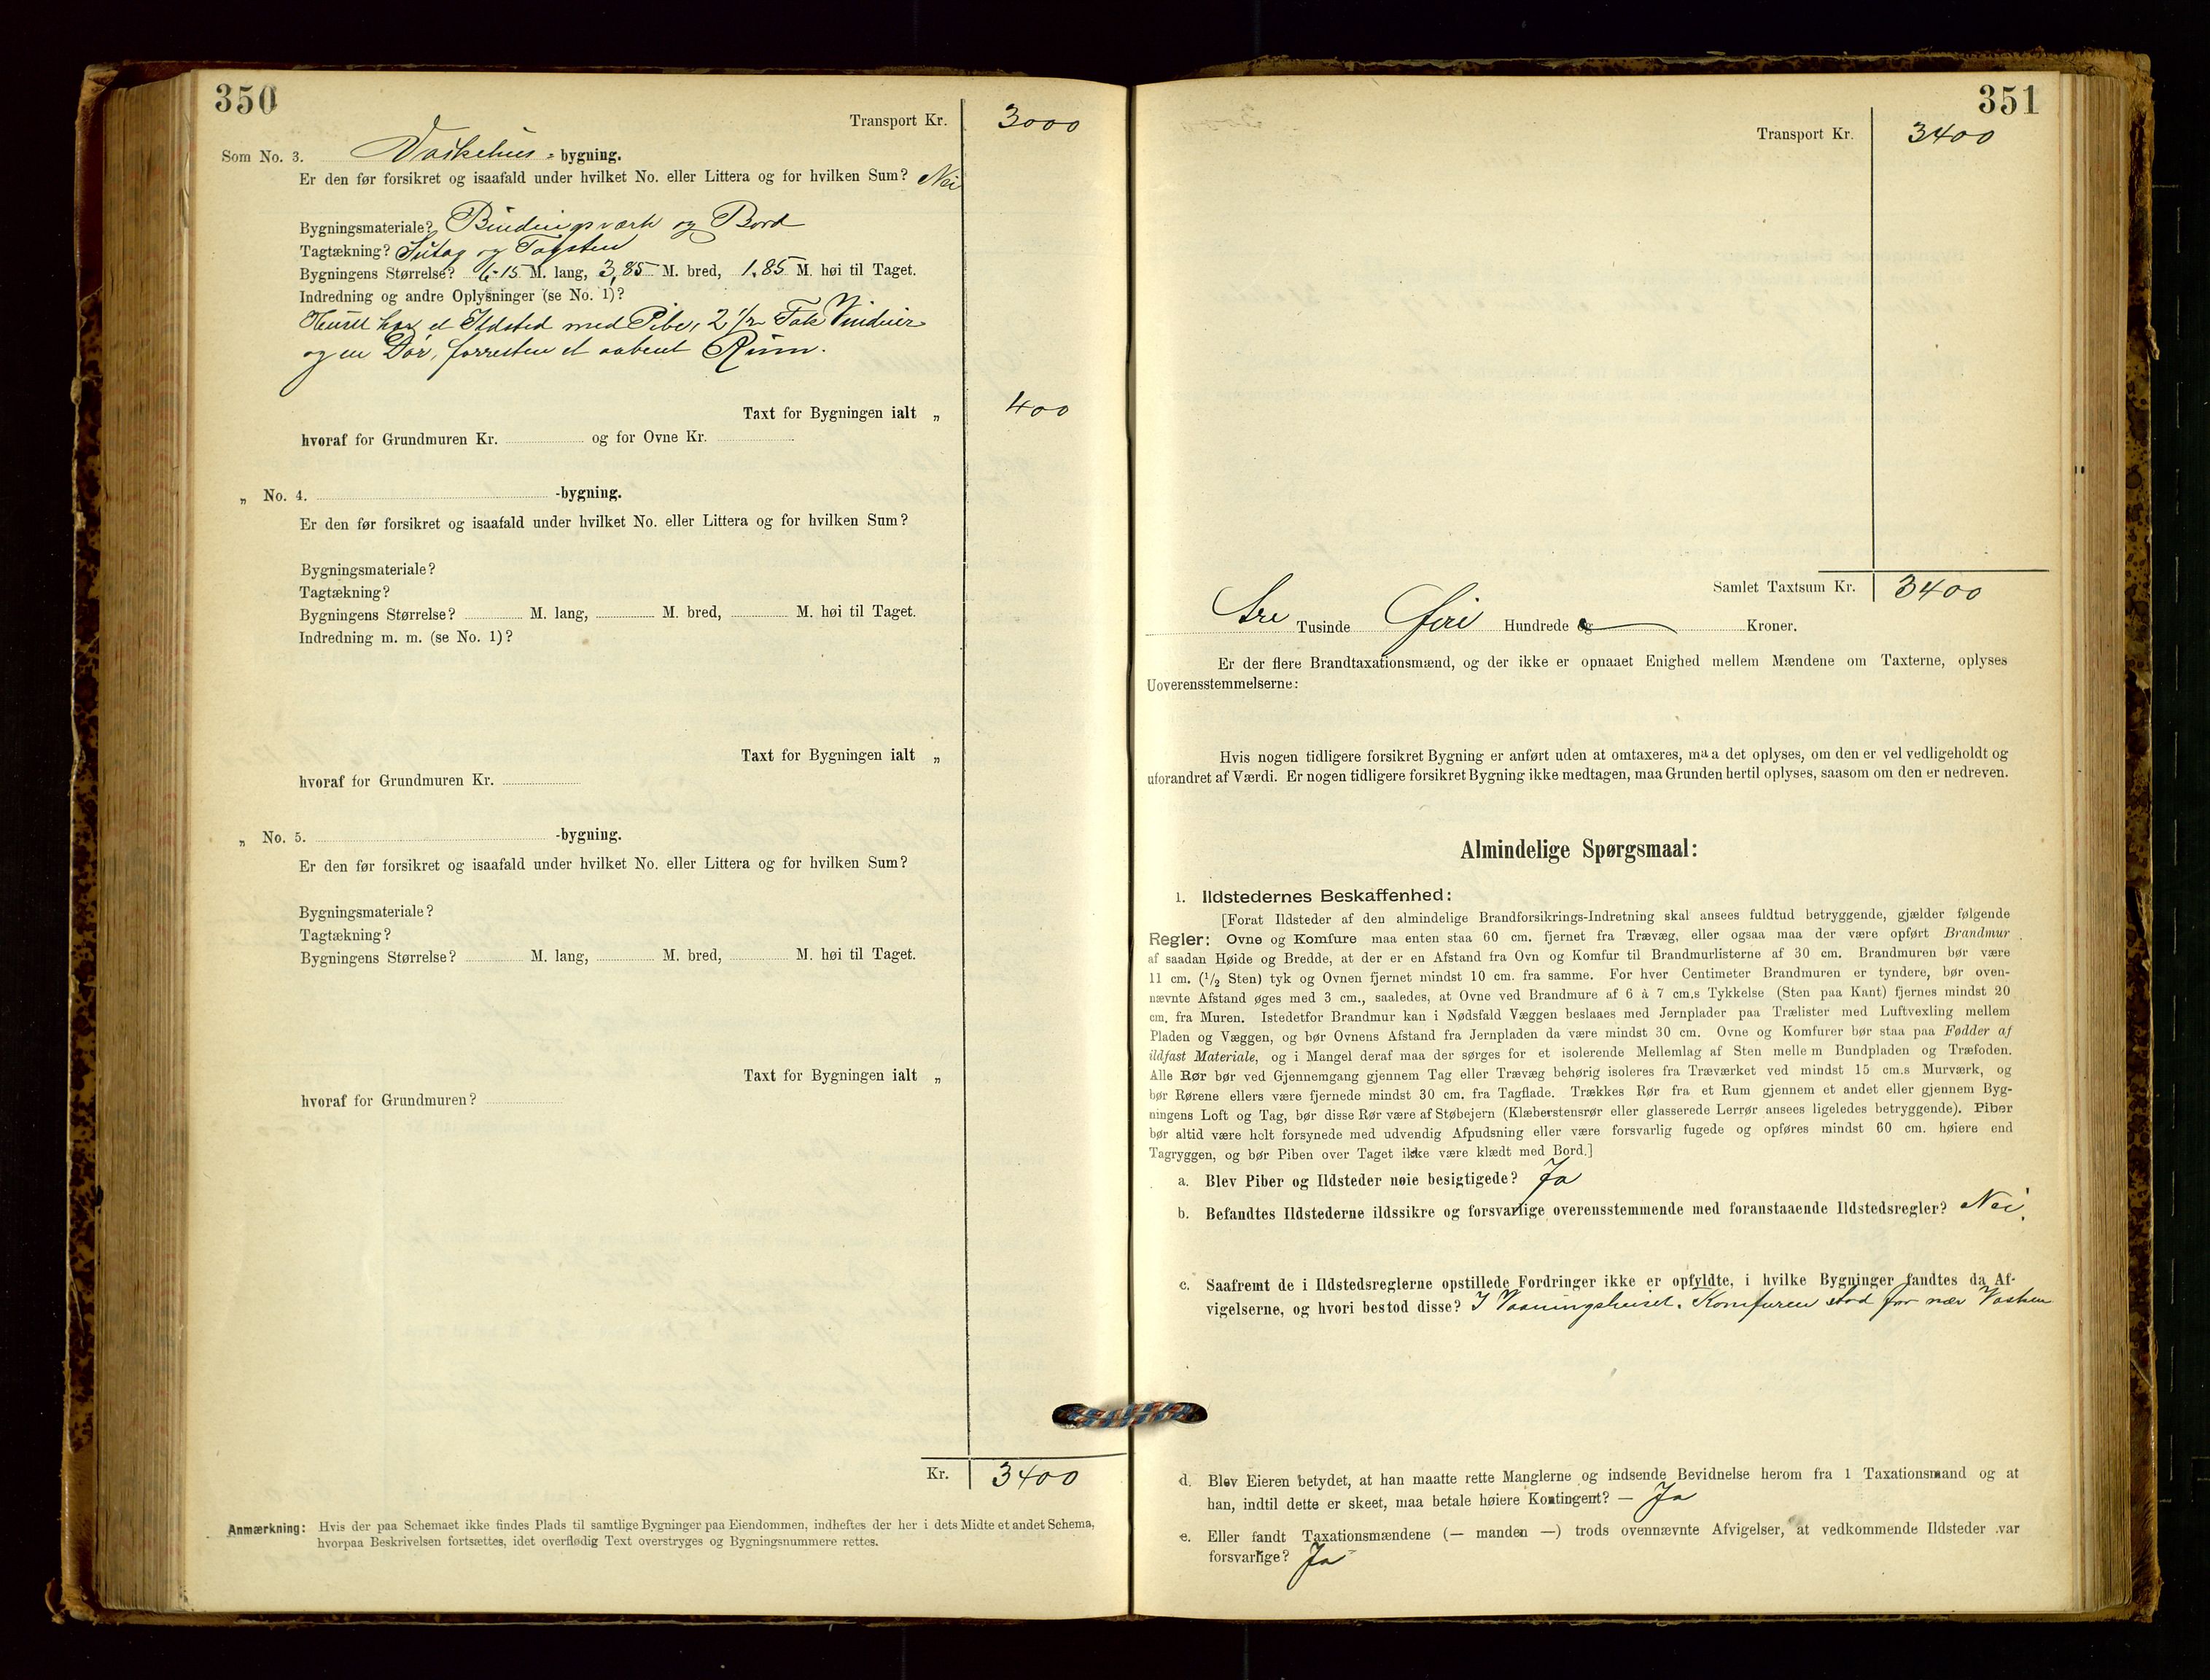 350
Transport Kr. 3000
Som No. 3. Vaskehus-bygning.
Er den før forsikret og isaafald under hvilket No. eller Littera og for hvilken Sum? Nei
Bygningsmateriale? Bindingsværk og Bord
Tagtækning? Sutag og Tagsten
Bygningens Størrelse? 6.15 M. lang, 3,85 M. bred, 1.85 M. høi til Taget.
Indredning og andre Oplysninger (se No. 1)?
Huset har et Ildsted med Pibe, 2 1/2 Fak Vinduer
og en Dør, forresten et aabent Rum.
Taxt for Bygningen ialt „ 400
hvoraf for Grundmuren Kr. og for Ovne Kr.
„ No. 4. -bygning.
Er den før forsikret og isaafald under hvilket No. eller Littera og for hvilken Sum?
Bygningsmateriale?
Tagtækning?
Bygningens Størrelse? M. lang, M. bred, M. høi til Taget.
Indredning m. m. (se No. 1)?
Taxt for Bygningen ialt „
hvoraf for Grundmuren Kr.
„ No. 5. -bygning.
Er den før forsikret og isaafald under hvilket No. eller Littera og for hvilken Sum?
Bygningsmateriale?
Tagtækning?
Bygningens Størrelse? M. lang, M. bred, M. høi til Taget.
Taxt for Bygningen ialt „
hvoraf for Grundmuren?
Kr. 3400
Anmærkning: Hvis der paa Schemaet ikke findes Plads til samtlige Bygninger paa Eiendommen, indheftes der her i dets Midte et andet Schema,
hvorpaa Beskrivelsen fortsættes, idet overflødig Text overstryges og Bygningsnummere rettes.
351
Transport Kr. 3400
Samlet Taxtsum Kr. 3400
Tre Tusinde Firi Hundrede og Kroner.
Er der flere Brandtaxationsmænd, og der ikke er opnaaet Enighed mellem Mændene om Taxterne, oplyses
Uoverensstemmelserne:
Hvis nogen tidligere forsikret Bygning er anført uden at omtaxeres, maa det oplyses, om den er vel vedligeholdt og
uforandret af Værdi. Er nogen tidligere forsikret Bygning ikke medtagen, maa Grunden hertil oplyses, saasom om den er nedreven.
Almindelige Spørgsmaal:
1. Ildstedernes Beskaffenhed:
[Forat Ildsteder af den almindelige Brandforsikrings-Indretning skal ansees fuldtud betryggende, gjælder følgende
Regler: Ovne og Komfure maa enten staa 60 cm. fjernet fra Trævæg, eller ogsaa maa der være opført Brandmur
af saadan Høide og Bredde, at der er en Afstand fra Ovn og Komfur til Brandmurlisterne af 30 cm. Brandmuren bør være
11 cm. (1/2 Sten) tyk og Ovnen fjernet mindst 10 cm. fra samme. For hver Centimeter Brandmuren er tyndere, bør oven-
nævnte Afstand øges med 3 cm., saaledes, at Ovne ved Brandmure af 6 à 7 cm.s Tykkelse (Sten paa Kant) fjernes mindst 20
cm. fra Muren. Istedetfor Brandmur kan i Nødsfald Væggen beslaaes med Jernplader paa Trælister med Luftvexling mellem
Pladen og Væggen, og bør Ovnens Afstand fra Jernpladen da være mindst 30 cm. Ovne og Komfurer bør staa paa Fødder af
ildfast Materiale, og i Mangel deraf maa der sørges for et isolerende Mellemlag af Sten mellem Bundpladen og Træfoden.
Alle Rør bør ved Gjennemgang gjennem Tag eller Trævæg behørig isoleres fra Træværket ved mindst 15 cm.s Murværk, og
bør Rørene ellers være fjernede mindst 30 cm. fra Tagflade. Trækkes Rør fra et Rum gjennem et andet eller gjennem Byg-
ningens Loft og Tag, bør disse Rør være af Støbejern (Klæberstensrør eller glasserede Lerrør ansees ligeledes betryggende). Piber
bør altid være helt forsynede med udvendig Afpudsning eller være forsvarlig fugede og opføres mindst 60 cm. høiere end
Tagryggen, og bør Piben over Taget ikke være klædt med Bord.]
a. Blev Piber og Ildsteder nøie besigtigede? Ja
b. Befandtes Ildstederne ildssikre og forsvarlige overensstemmende med foranstaaende Ildstedsregler? Nei.
c. Saafremt de i Ildstedsreglerne opstillede Fordringer ikke er opfyldte, i hvilke Bygninger fandtes da Af-
vigelserne, og hvori bestod disse? I Vaaningshuset. Komfuren stod for nær
d. Blev Eieren betydet, at han maatte rette Manglerne og indsende Bevidnelse herom fra 1 Taxationsmand og at
han, indtil dette er skeet, maa betale høiere Kontingent? — Ja
e. Eller fandt Taxationsmændene (— manden —) trods ovennævnte Afvigelser, at vedkommende Ildsteder var
forsvarlige? Ja